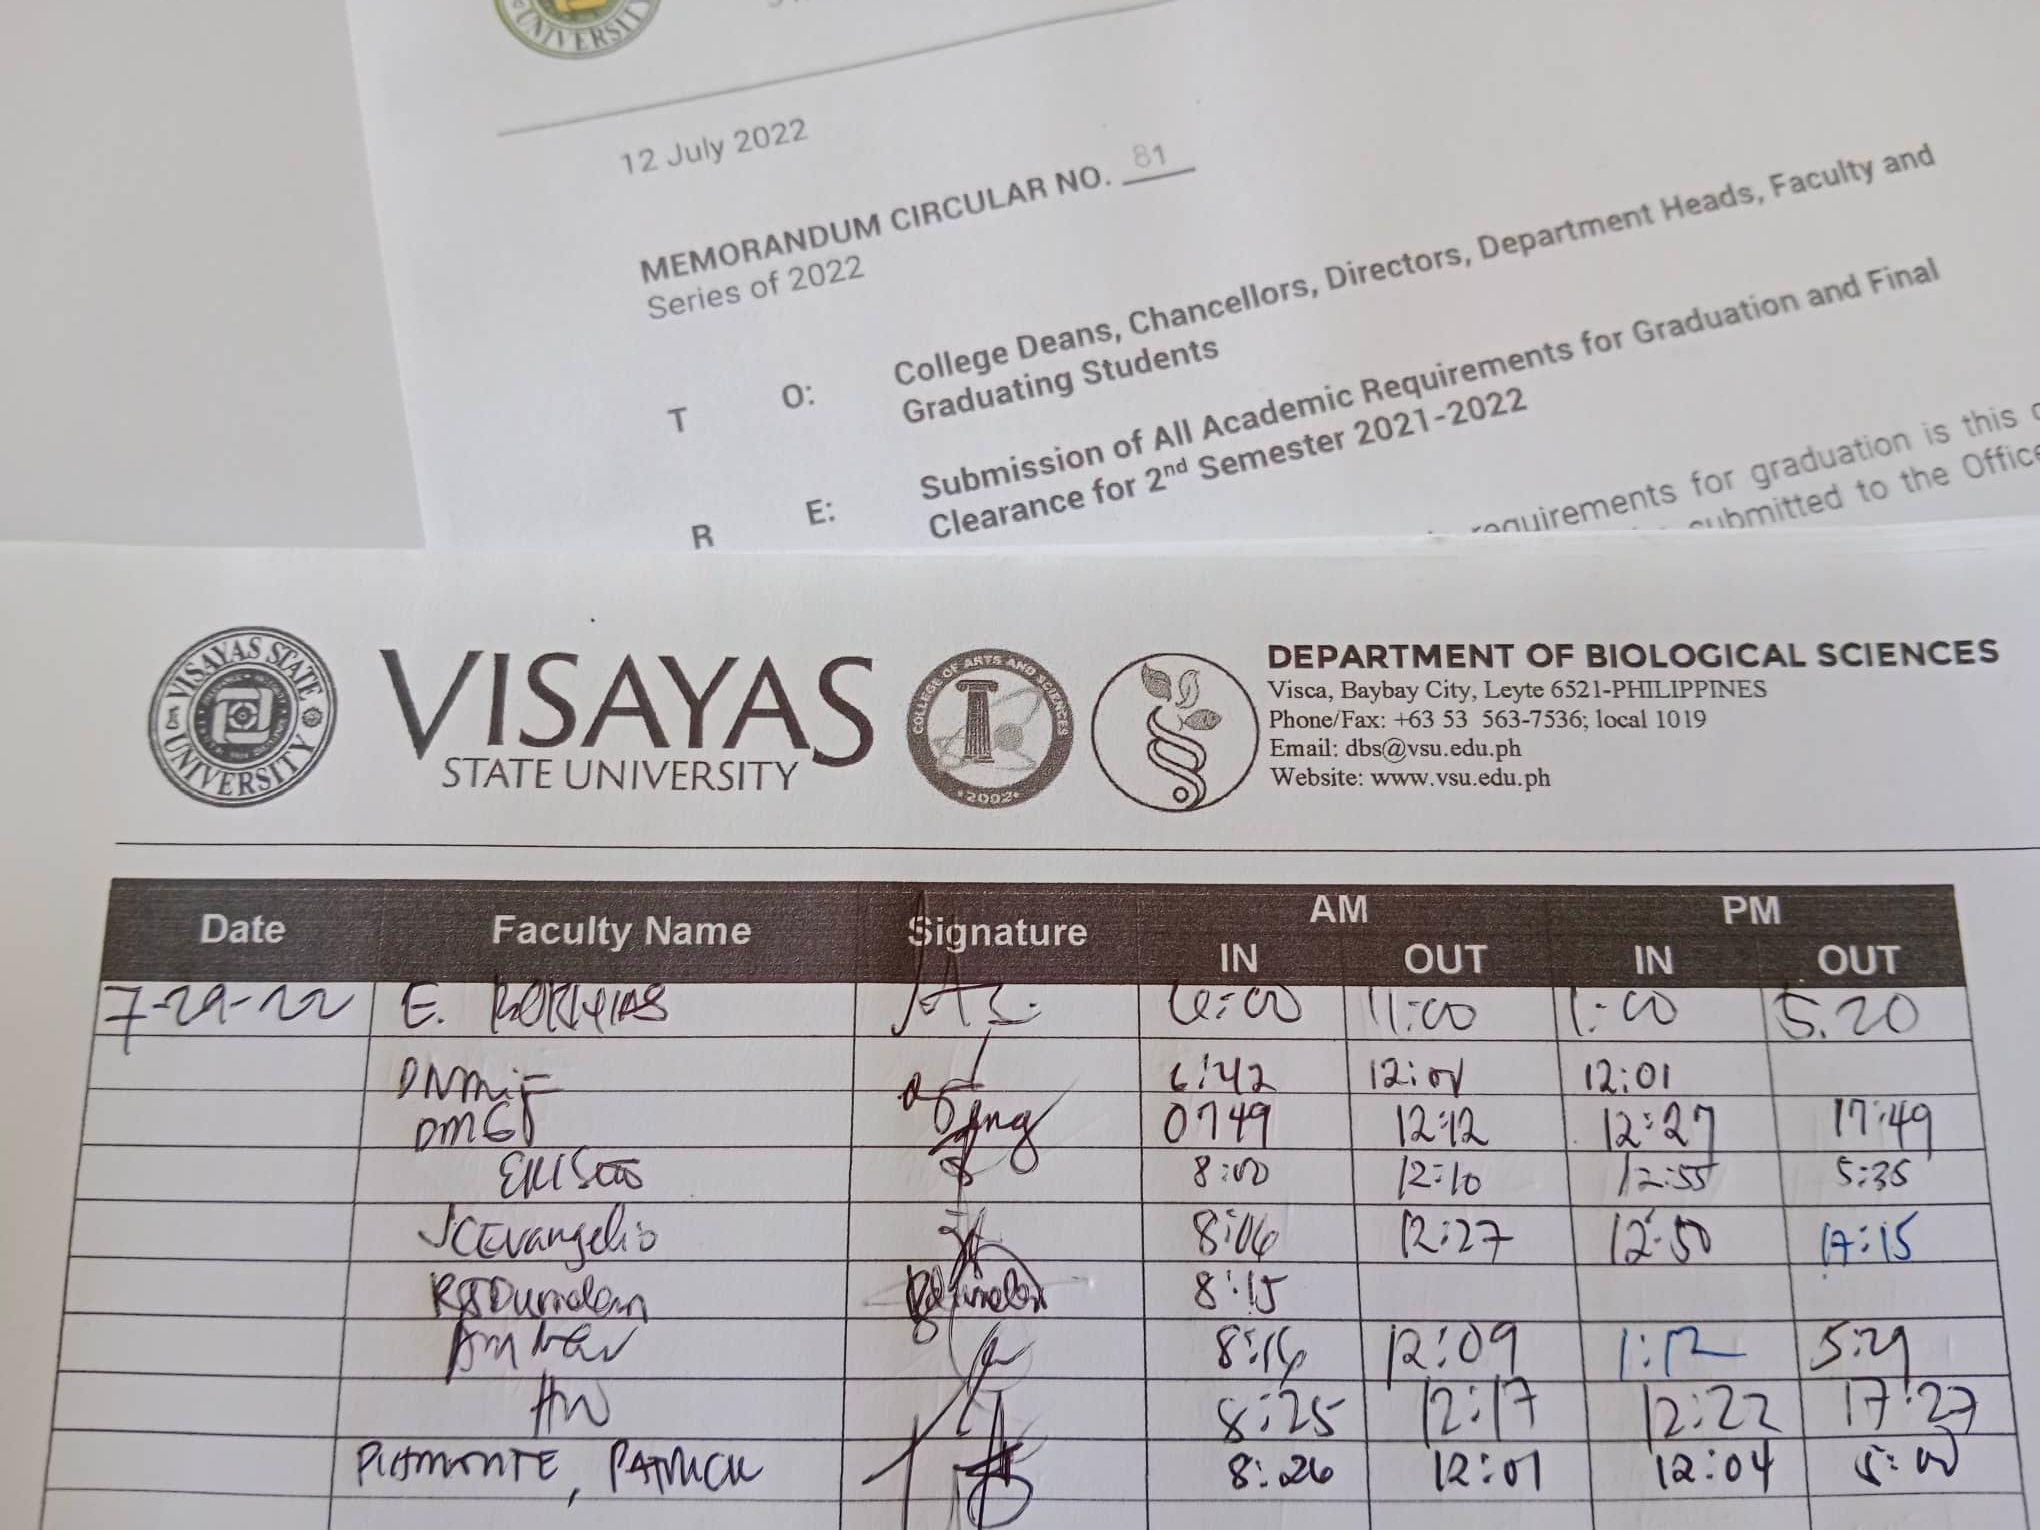 UNIVERSITY
12 July 2022
MEMORANDUM CIRCULAR NO. 81
Series of 2022
T O: College Deans, Chancellors, Directors, Department Heads, Faculty and
Graduating Students
R E: Submission of All Academic Requirements for Graduation and Final
Clearance for 2nd Semester 2021-2022
requirements for graduation is this
submitted to the Office
VISAYAS STATE UNIVERSITY
VISAYAS
STATE UNIVERSITY
COLLEGE OF ARTS AND SCIENCES
2002
DEPARTMENT OF BIOLOGICAL SCIENCES
Visca, Baybay City, Leyte 6521-PHILIPPINES
Phone/Fax: +63 53 563-7536; local 1019
Email: dbs@vsu.edu.ph
Website: www.vsu.edu.ph
Date Faculty Name Signature AM PM
IN OUT IN OUT
7-29-22 E. 6:00 11:00 1:00 5.20
6:42 12:01 12:01
0749 12:12 12:27 17:49
8:00 12:10 12:55 5:35
JCEvangelio 8:06 12:27 12:50 17:15
8:15
8:16 12:09 1:12 5:29
8:25 12:17 12:22 17:27
PIAMONTE, PATRICK 8:26 12:01 12:04 5:00